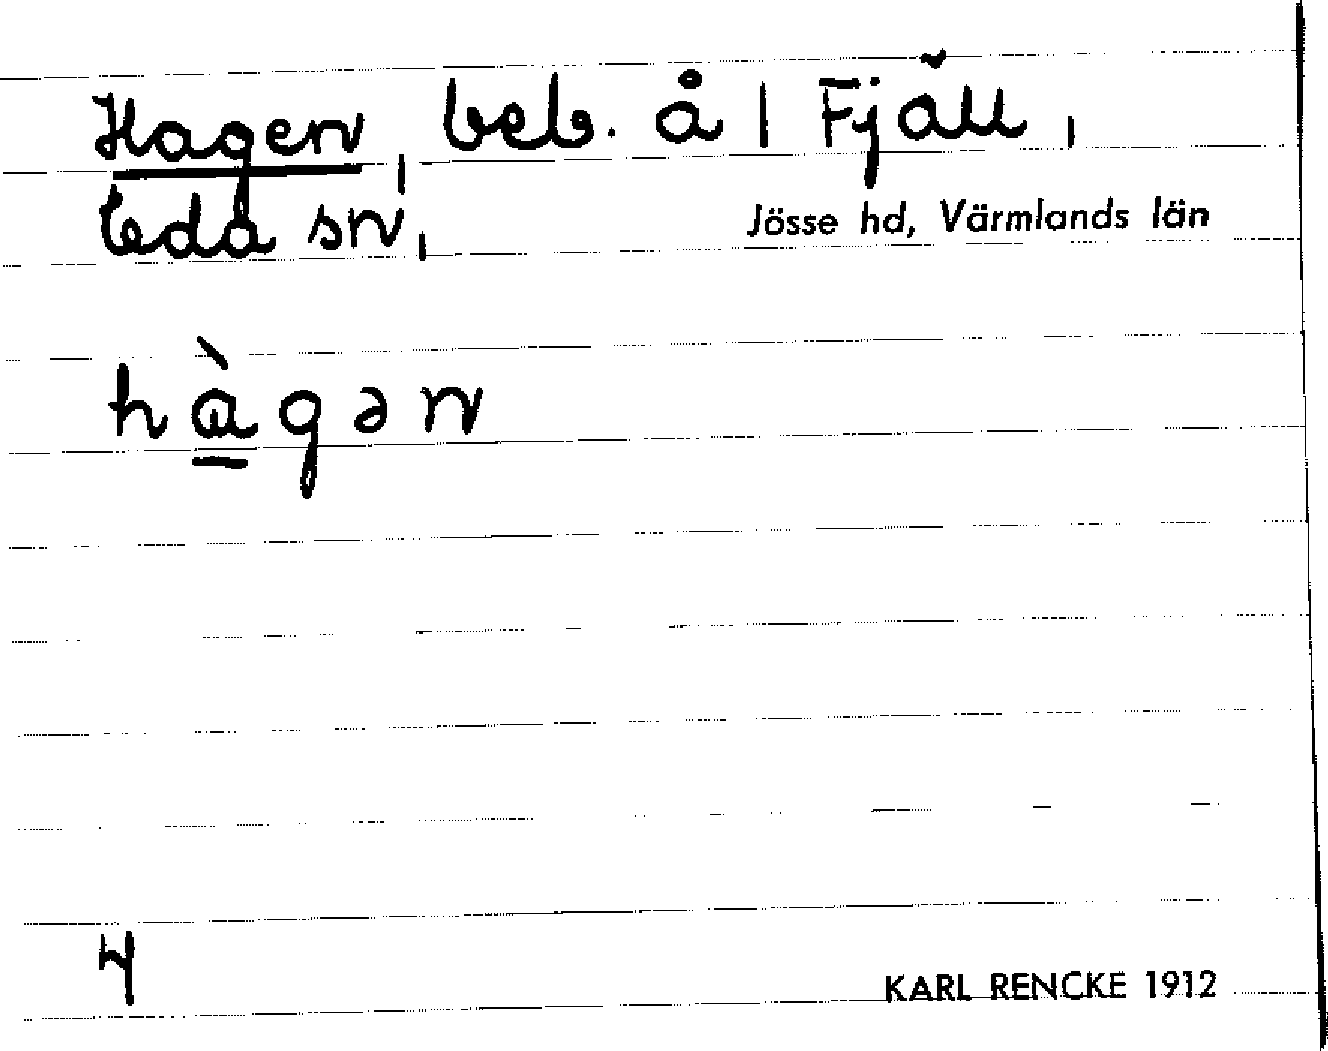 Hagen, beb. å 1 Fjäll,
Eda sn, Jösse hd, Värmlands län
hàgən
4
KARL RENCKE 1912